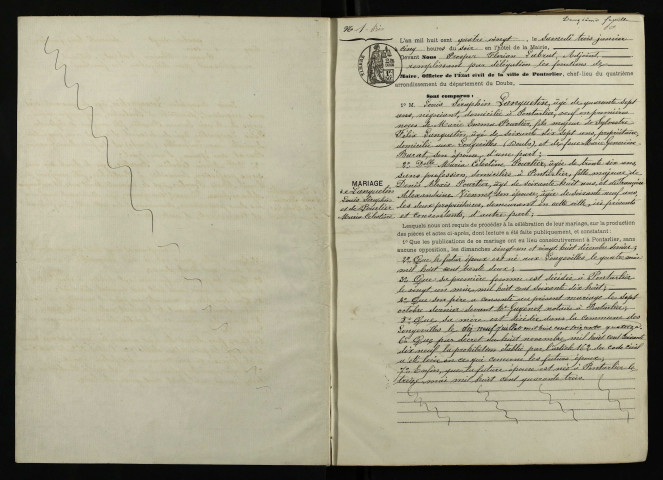 No 1
L'an mil huit cent quatre vingt, le samedi trois janvier
cinq heures du soir en l'hôtel de la Mairie,
Devant Nous Prosper Florian Gabriel, Adjoint
remplissant par délégation les fonctions de
Maire, Officier de l'État civil de la ville de Pontarlier, chef-lieu du quatrième
arrondissement du département du Doubs,
Sont comparus :
1º M. Louis Séraphin Lanquetin, âgé de quarante sept
ans, négociant, domicilié à Pontarlier, veuf en premières
noces de Marie Pourtier, fils majeur de Sylvestre
Félix Lanquetin, âgé de soixante dix sept ans, propriétaire,
domicilié aux Longevilles (Doubs) et de feue Marie Germaine
son épouse, d'une part ;
2º Dlle Marie Célestine Pourtier, âgée de trente six ans,
sans profession, domiciliée à Pontarlier, fille majeure de
Denis Alexis Pourtier, âgé de soixante huit ans et de Françoise
Alexandrine Vionnet, son épouse, âgée de soixante neuf ans,
les deux propriétaires, demeurant en cette ville, ici présents
et consentants, d'autre part ;
MARIAGE
de Lanquetin
Louis Séraphin
et de Pourtier
Marie Célestine
Lesquels nous ont requis de procéder à la célébration de leur mariage, sur la production
des pièces et actes ci-après, dont lecture a été faite publiquement, et constatant :
1º Que les publications de ce mariage ont eu lieu consécutivement à Pontarlier, sans
aucune opposition, les dimanches vingt-un et vingt huit décembre dernier ;
2º Que le futur époux est né aux Longevilles, le quatre mai
mil huit cent trente deux ;
3º Que sa première femme est décédée à Pontarlier
le vingt un mai mil huit cent soixante dix huit ;
4º Que son père a consenti au présent mariage le sept
octobre dernier devant Me notaire à Pontarlier,
5º Que sa mère est décédée dans la commune des
Longevilles le dix neuf juillet mil huit cent cinquante quatre ;
6º Que par décret du huit novembre mil huit cent soixante
dix neuf la prohibition établie par l'article 162 du code civil
a été levée en ce qui concerne les futurs époux,
7º Enfin, que la future épouse est née à Pontarlier le
treize mai mil huit cent quarante trois.